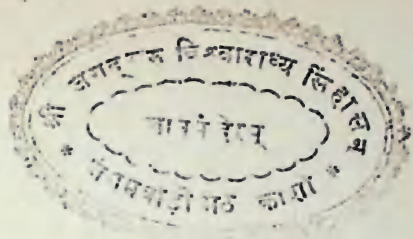 श्री जगद्गुरु विश्वाराध्य सिंहासन
* जंगमवाड़ी मठ काशी *